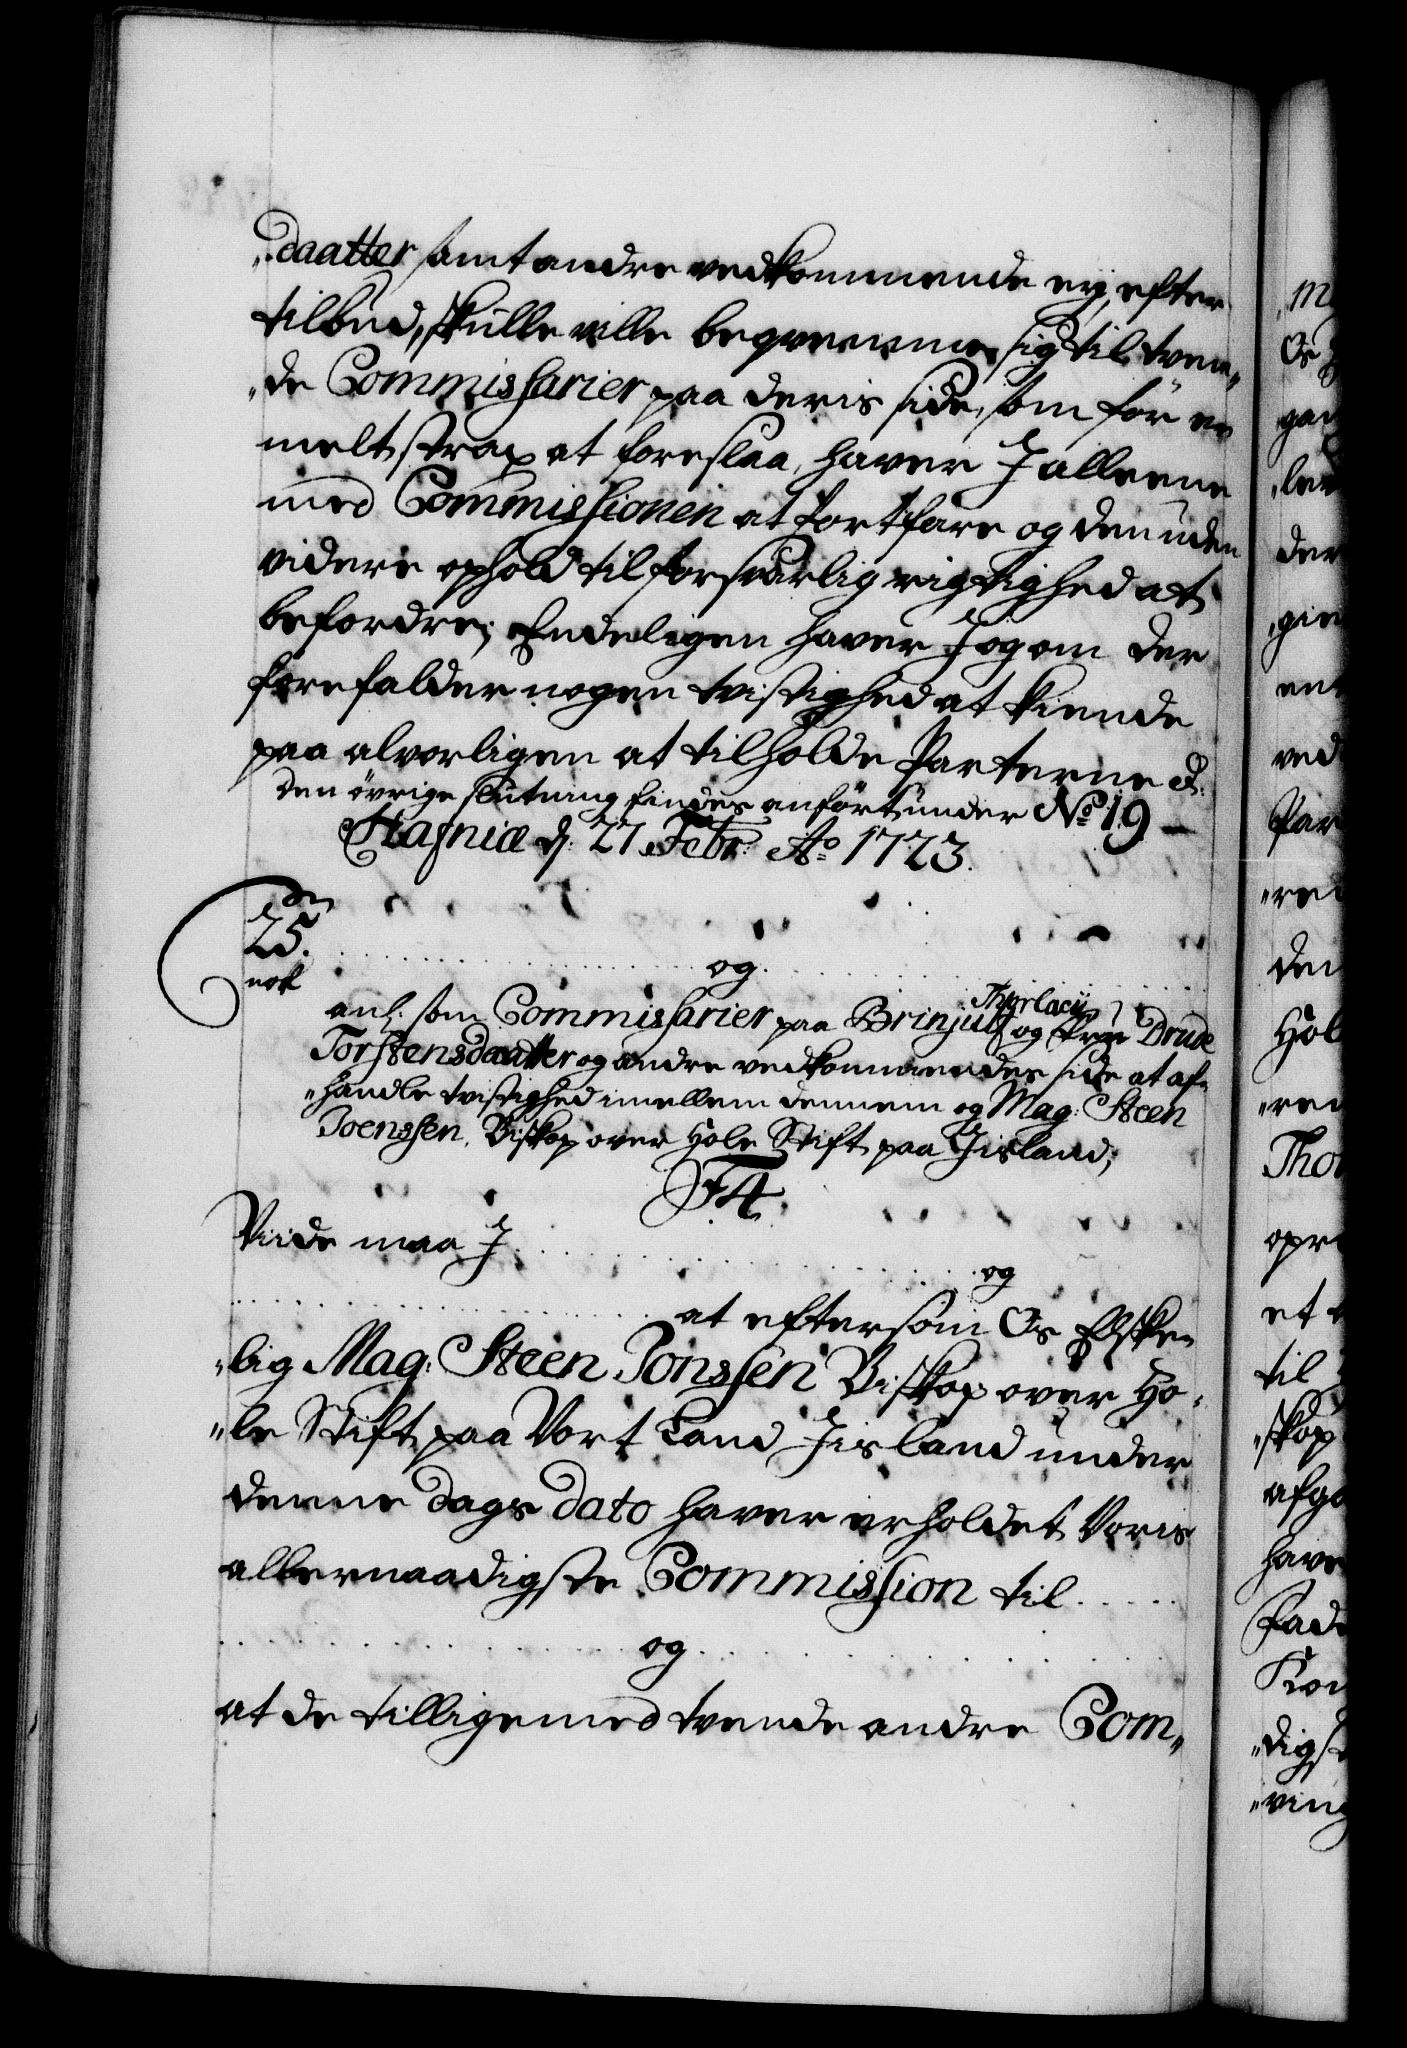 "daatter samt andre vedkommende ey, efter
tilbud, skulle ville beqvemme sig til tven„
"de Commissarier paa deris side, som för er
melt strax at foreslaa, haver I alleene
med Commissionen at fortfare og den uden
videre ophold til forsvarlig rigtighed at
befordre; Endeligen haver I og om der
forefalder nogen tvistighed at kiende
paa alvorligen at tilholde Parterne &:
den övrige slutning findes anfört under No. 19
Hafniæ d: 27 Febr: Ao 1723.
25.
og
anl: som Commissarier paa Brinjulf Thorlacii og Drude
Torstensdaatter og andre vedkommendes side at af„
"handle tvistighed imellem dennem og Mag: Steen
Joenssen, Biskop over Hole Stift paa Jisland;
F4.
Viide maa I
og
at eftersom Os Elske„
"lig Mag: Steen Jonssen Biskop over Ho„
"le Stift paa Vort Land Jisland under
denne dags dato haver erholdet Voris
allernaadigste Commission til
og
at de tilligemed tvende andre Com„